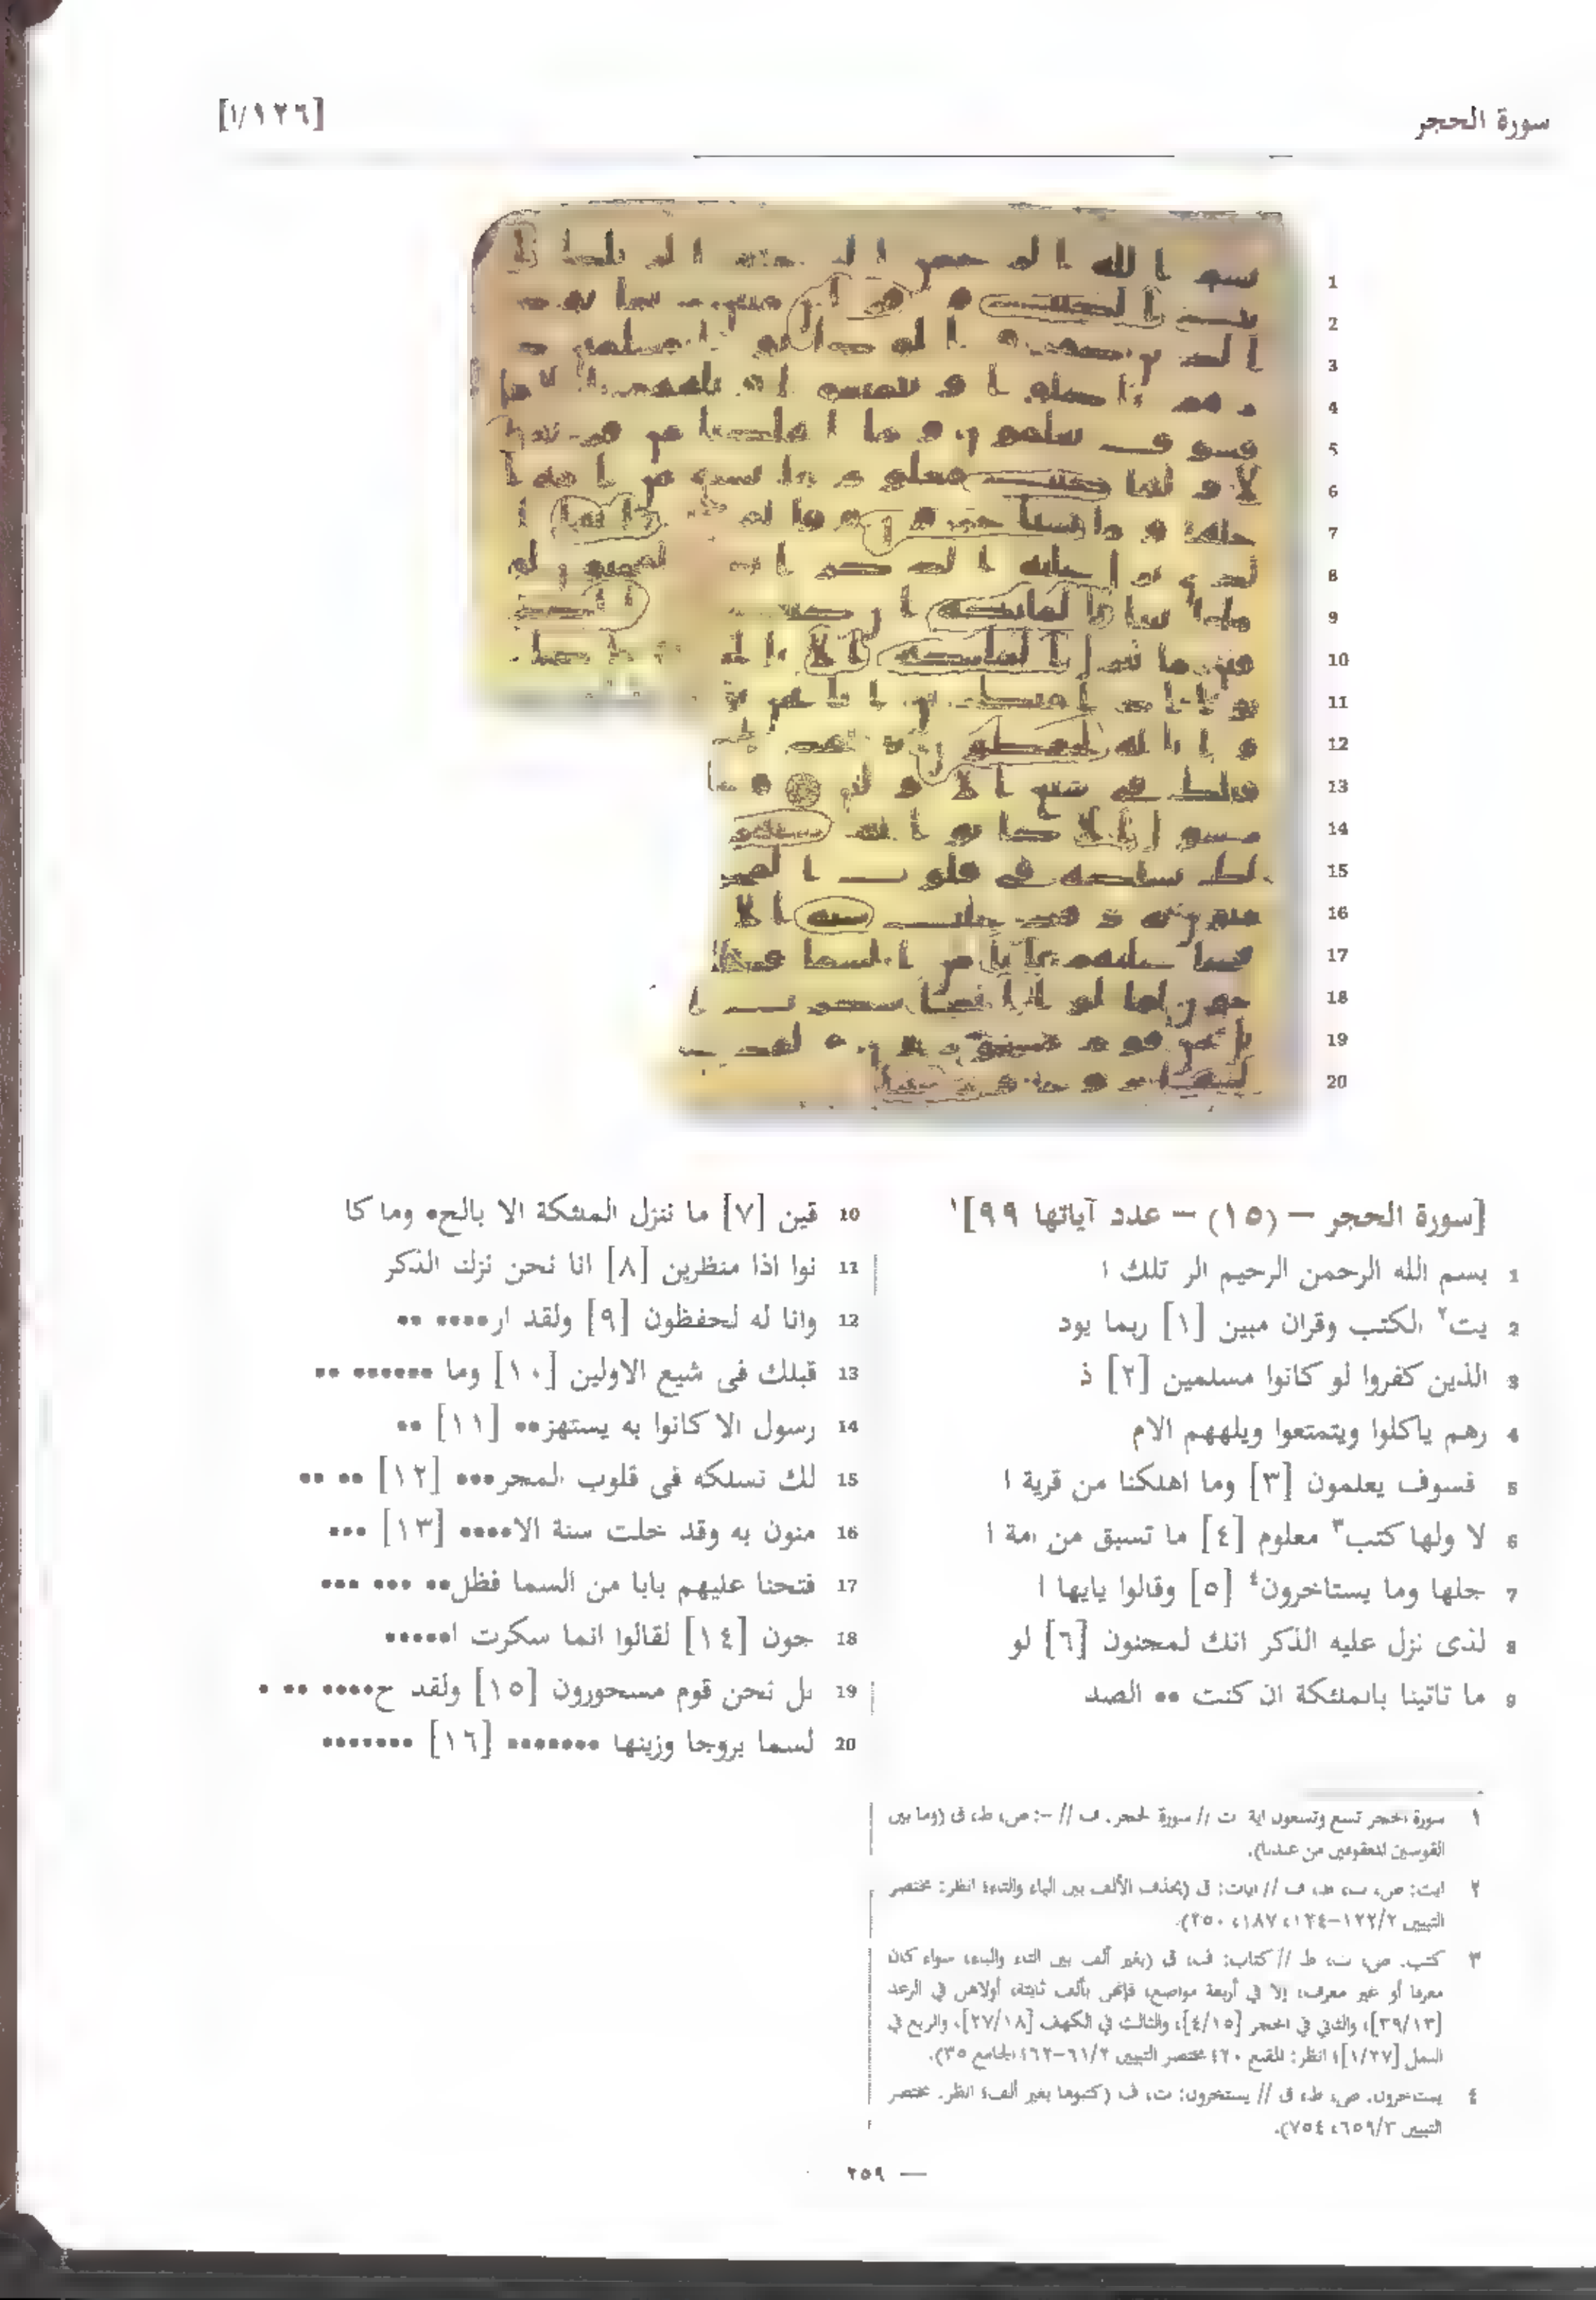 سورة الحجر
[١/١٢٦]
[سورة الحجر – (١٥) – عدد آياتها ٩٩]١
1 بسم الله الرحمن الرحيم الر تلك ا
2 يت٢ الكتب وقران مبين [١] ربما يود
3 الذين كفروا لو كانوا مسلمين [٢] ذ
4 رهم ياكلوا ويتمتعوا ويلههم الام
5 فسوف يعلمون [٣] وما اهلكنا من قرية ا
6 لا ولها كتب٣ معلوم [٤] ما تسبق من امة ا
7 جلها وما يستاخرون٤ [٥] وقالوا يايها ا
8 لذى نزل عليه الذكر انك لمجنون [٦] لو
9 ما تاتينا بالملئكة ان كنت •• الصد
10 قين [٧] ما ننزل الملئكة الا بالح• وما كا
11 نوا اذا منظرين [٨] انا نحن نزلنا الذكر
12 وانا له لحفظون [٩] ولقد ار•••• ••
13 قبلك فى شيع الاولين [١٠] وما •••••• ••
14 رسول الا كانوا به يستهز•• [١١] ••
15 لك نسلكه فى قلوب المجر••• [١٢] •• ••
16 منون به وقد خلت سنة الا•••• [١٣] •••
17 فتحنا عليهم بابا من السما فظل•• ••• •••
18 جون [١٤] لقالوا انما سكرت ا•••••
19 بل نحن قوم مسحورون [١٥] ولقد ج•••• •• •
20 لسما بروجا وزينها ••••••• [١٦] •••••••
١ سورة الحجر تسع وتسعون اية: ت // سورة الحجر: ف // –: ص، ط، ق (وما بين
القوسين المعقوفين من عندنا).
٢ ايت: ص، ت، ط، ف // ايات: ق (بحذف الألف بين الياء والتاء؛ انظر: مختصر
التبيين ١٢٢/٢–١٢٤، ١٨٧، ٢٥٠).
٣ كتب: ص، ت، ط // كتاب: ف، ق (بغير ألف بين التاء والباء، سواء كان
معرفا أو غير معرف، إلا في أربعة مواضع، فإنهن بألف ثابتة، أولاهن في الرعد
[٣٩/١٣]، والثاني في الحجر [٤/١٥]، والثالث في الكهف [٢٧/١٨]، والربع في
النمل [١/٢٧]؛ انظر: المقنع ٢٠؛ مختصر التبيين ٦١/٢–٦٢؛ الجامع ٣٥).
٤ يستاخرون: ص، ط، ق // يستخرون: ت، ف (كتبوها بغير ألف؛ انظر: مختصر
التبيين ٦٥٩/٣، ٧٥٤).
— ٢٥٩